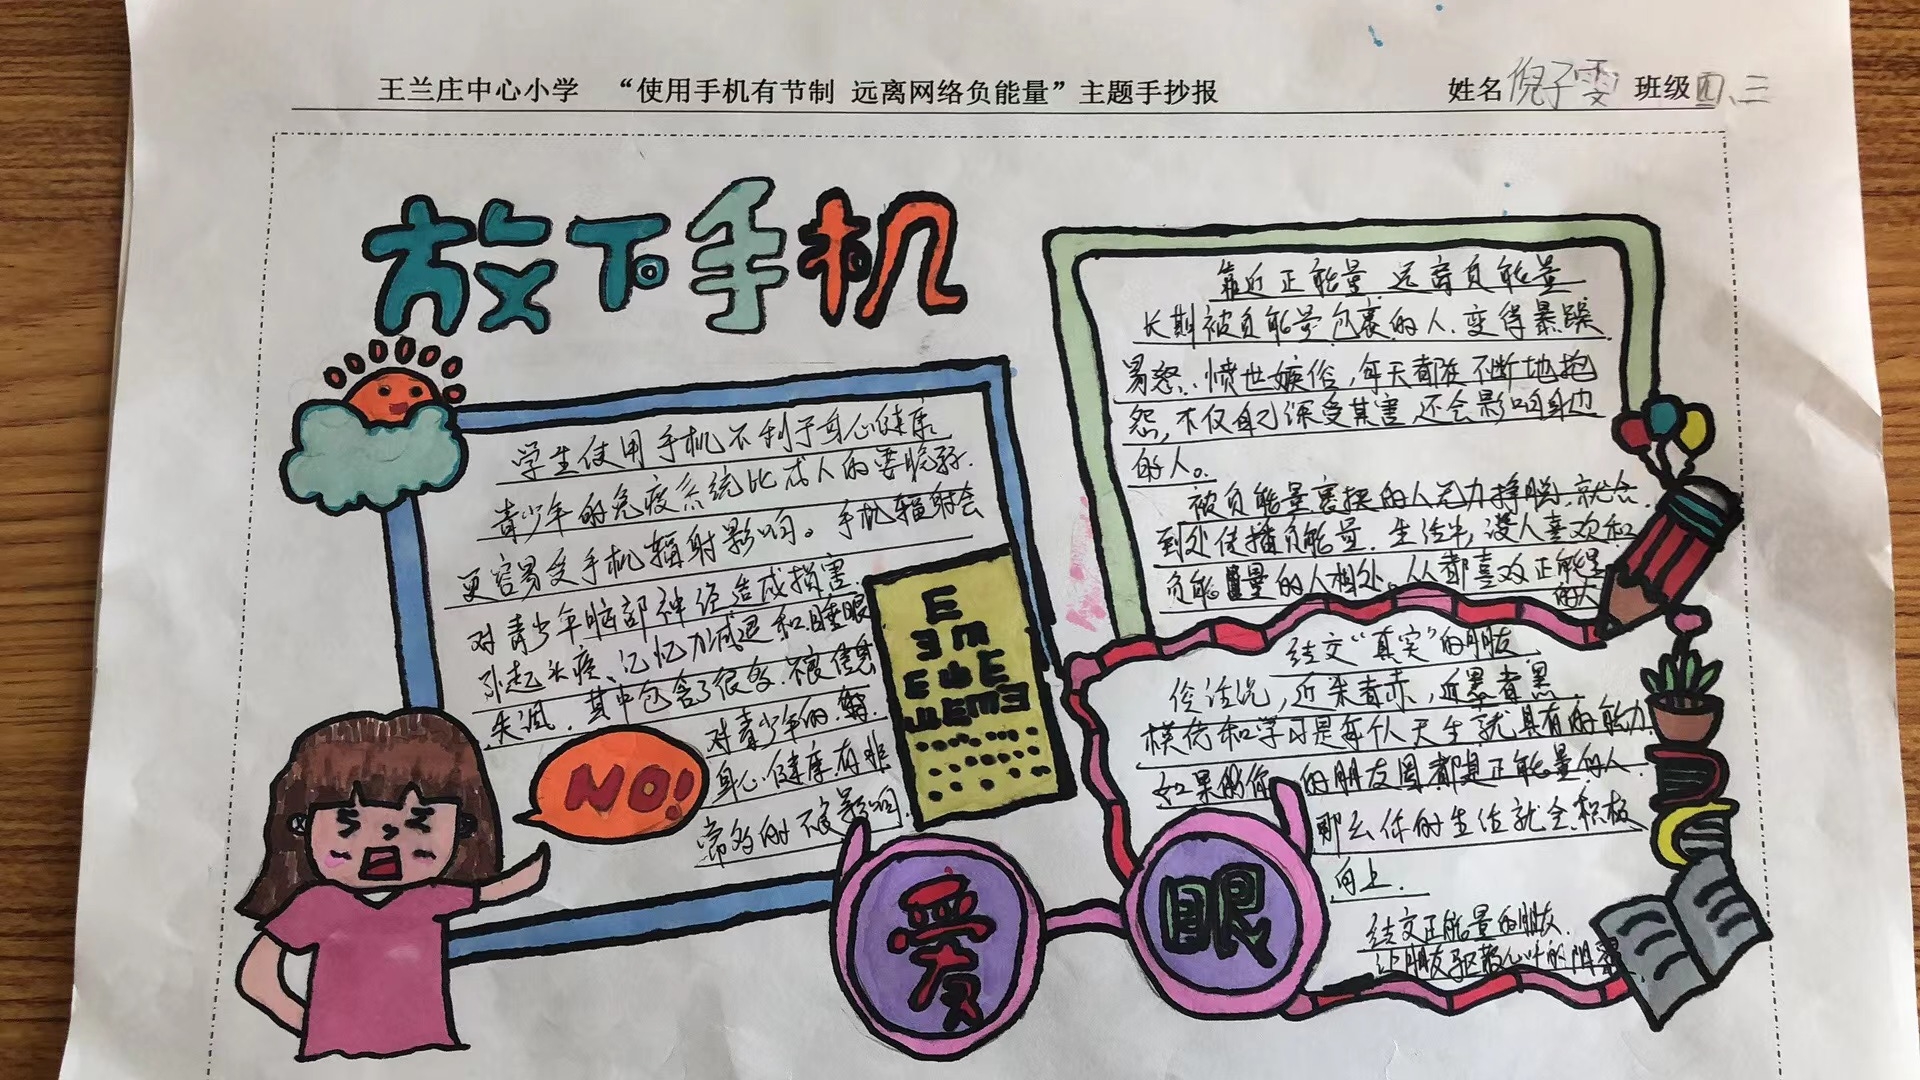 王兰庄中心小学 “使用手机有节制 远离网络负能量”主题手抄报 姓名倪子雯 班级四、三
放下手机
学生使用手机不利于身心健康
青少年的免疫系统比成人的要脆弱.
更容易受手机辐射影响。手机辐射会
对青少年脑部神经造成损害
引起头疼、记忆力减退和睡眠
失调. 其中包含了很多.不良信息
对青少年的
身心健康.有非
常多的不良影响.
NO!
E
E m
E E
爱
眼
靠近正能量 远离负能量
长期被负能量包裹的人.变得暴躁
易怒.愤世嫉俗,每天都在不断地抱
怨,不仅自己深受其害,还会影响身边
的人。
被负能量裹挟的人无力挣脱.就会
到处传播负能量.生活中,没人喜欢和
负能量的人相处。人都喜欢正能量
的人
结交“真实”的朋友
俗话说,近朱者赤,近墨者黑
模仿和学习是每个人天生就具有的能力
如果你的朋友圈都是正能量的人.
那么你的生活就会积极
向上.
结交正能量的朋友.
让朋友驱散心中的阴霾